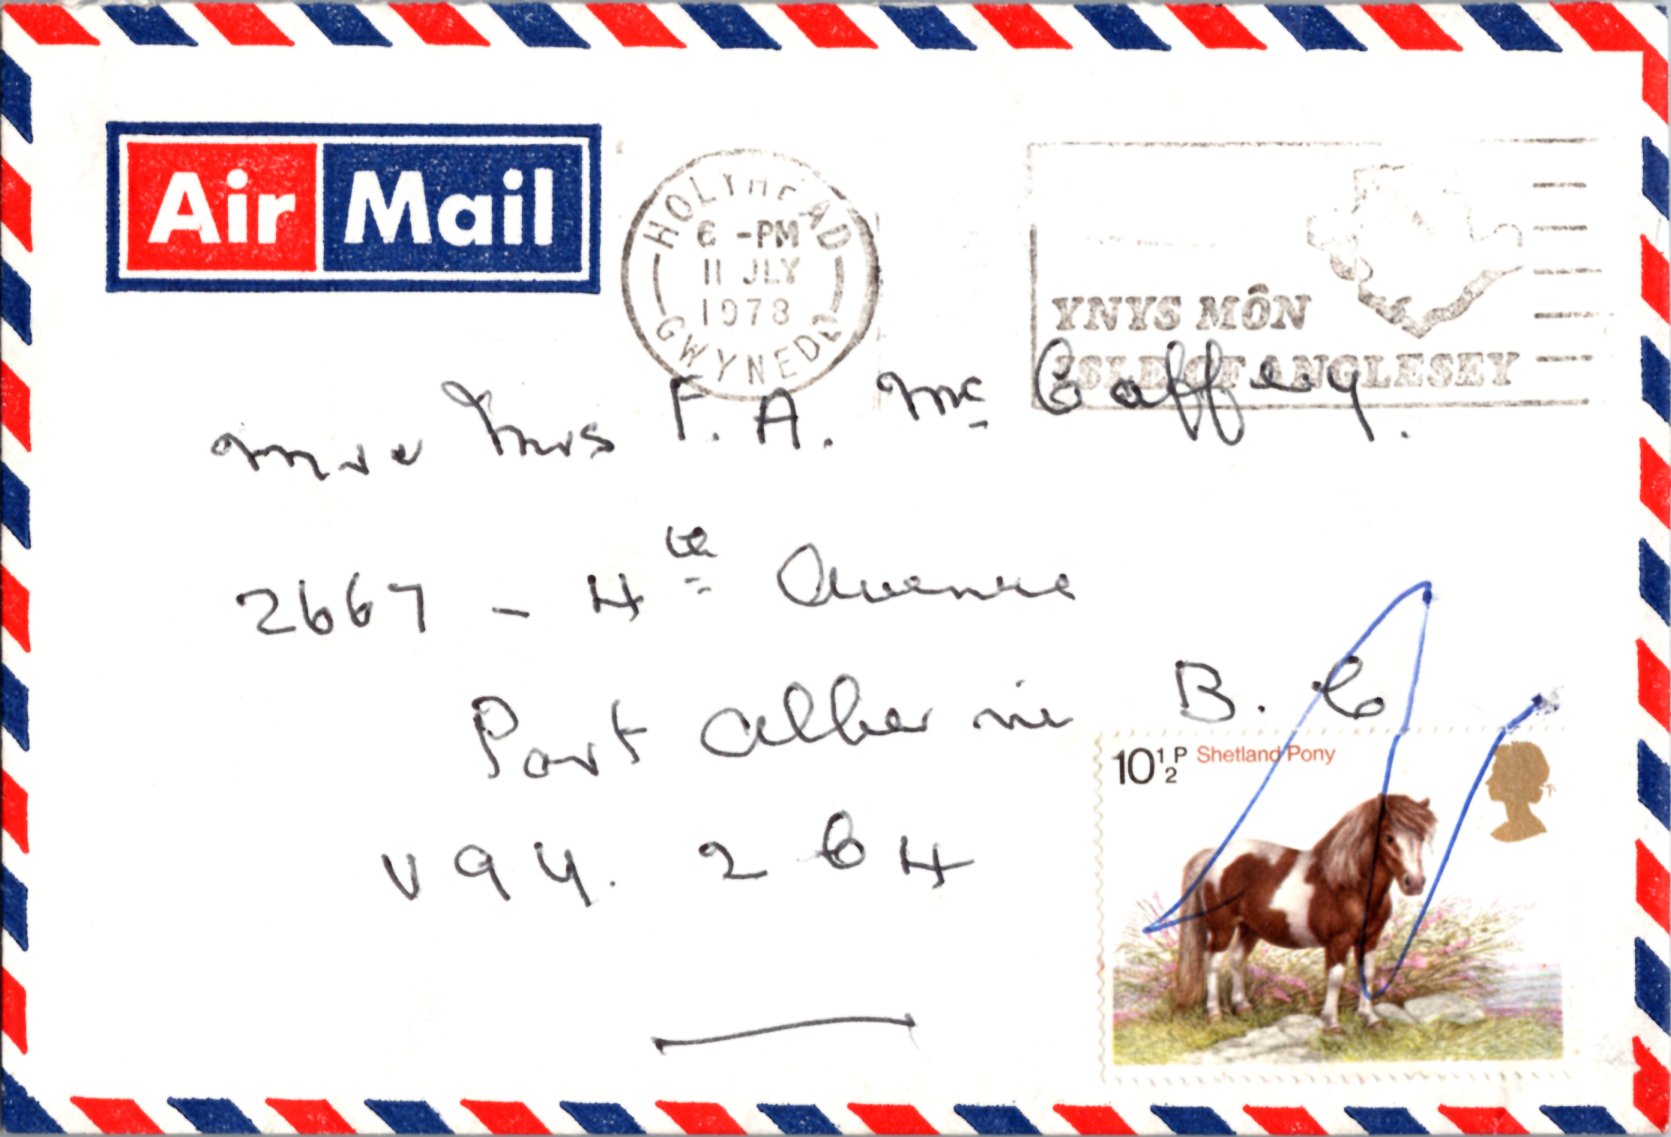 Air Mail
HOLYHEAD
6 -PM
11 JLY
1978
GWYNEDD
YNYS MÔN
ISLE OF ANGLESEY
Mr & Mrs F. A. Mc Gaffrey.
2667 - 4th Avenue
Port Alberine B. C
V9Y. 2G4
10½P Shetland Pony